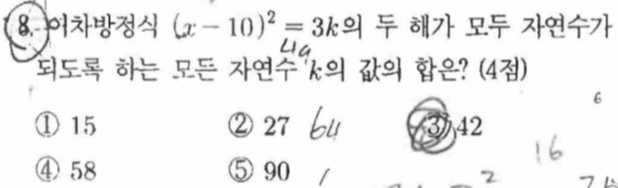 8. 이차방정식 (x-10)² = 3k의 두 해가 모두 자연수가
되도록 하는 모든 자연수 k의 값의 합은? (4점)
① 15 ② 27 64 ③ 42 6
④ 58 ⑤ 90 16
2